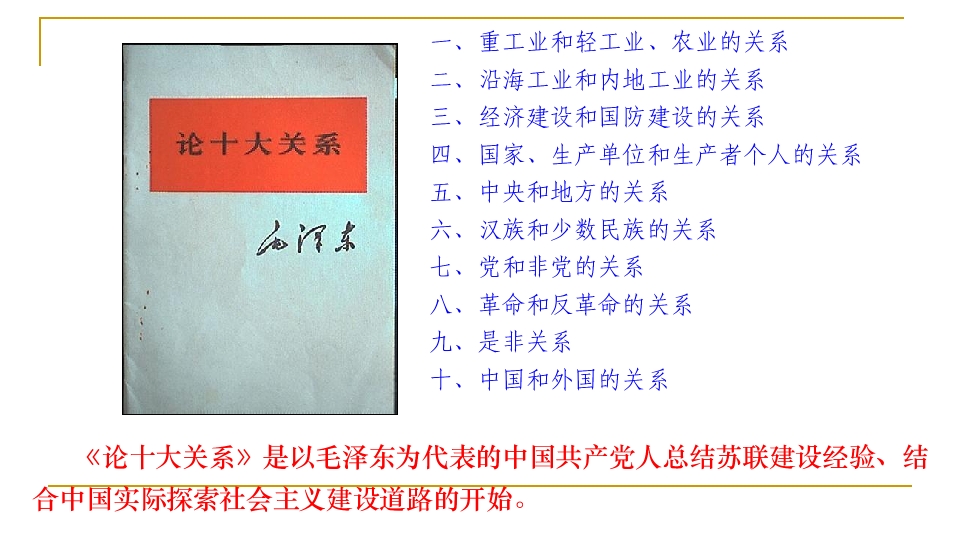 论十大关系
毛泽东
一、重工业和轻工业、农业的关系
二、沿海工业和内地工业的关系
三、经济建设和国防建设的关系
四、国家、生产单位和生产者个人的关系
五、中央和地方的关系
六、汉族和少数民族的关系
七、党和非党的关系
八、革命和反革命的关系
九、是非关系
十、中国和外国的关系
《论十大关系》是以毛泽东为代表的中国共产党人总结苏联建设经验、结
合中国实际探索社会主义建设道路的开始。